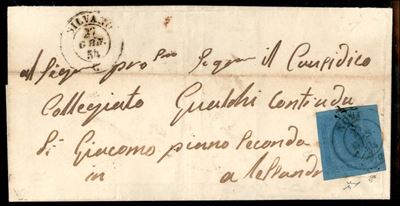 SILVANO
27
GEN.
54
al Sigr pro Sigr il Causidico
Collegiato Gualchi Contrada
Di Giacomo piano Secondo
in alessandr